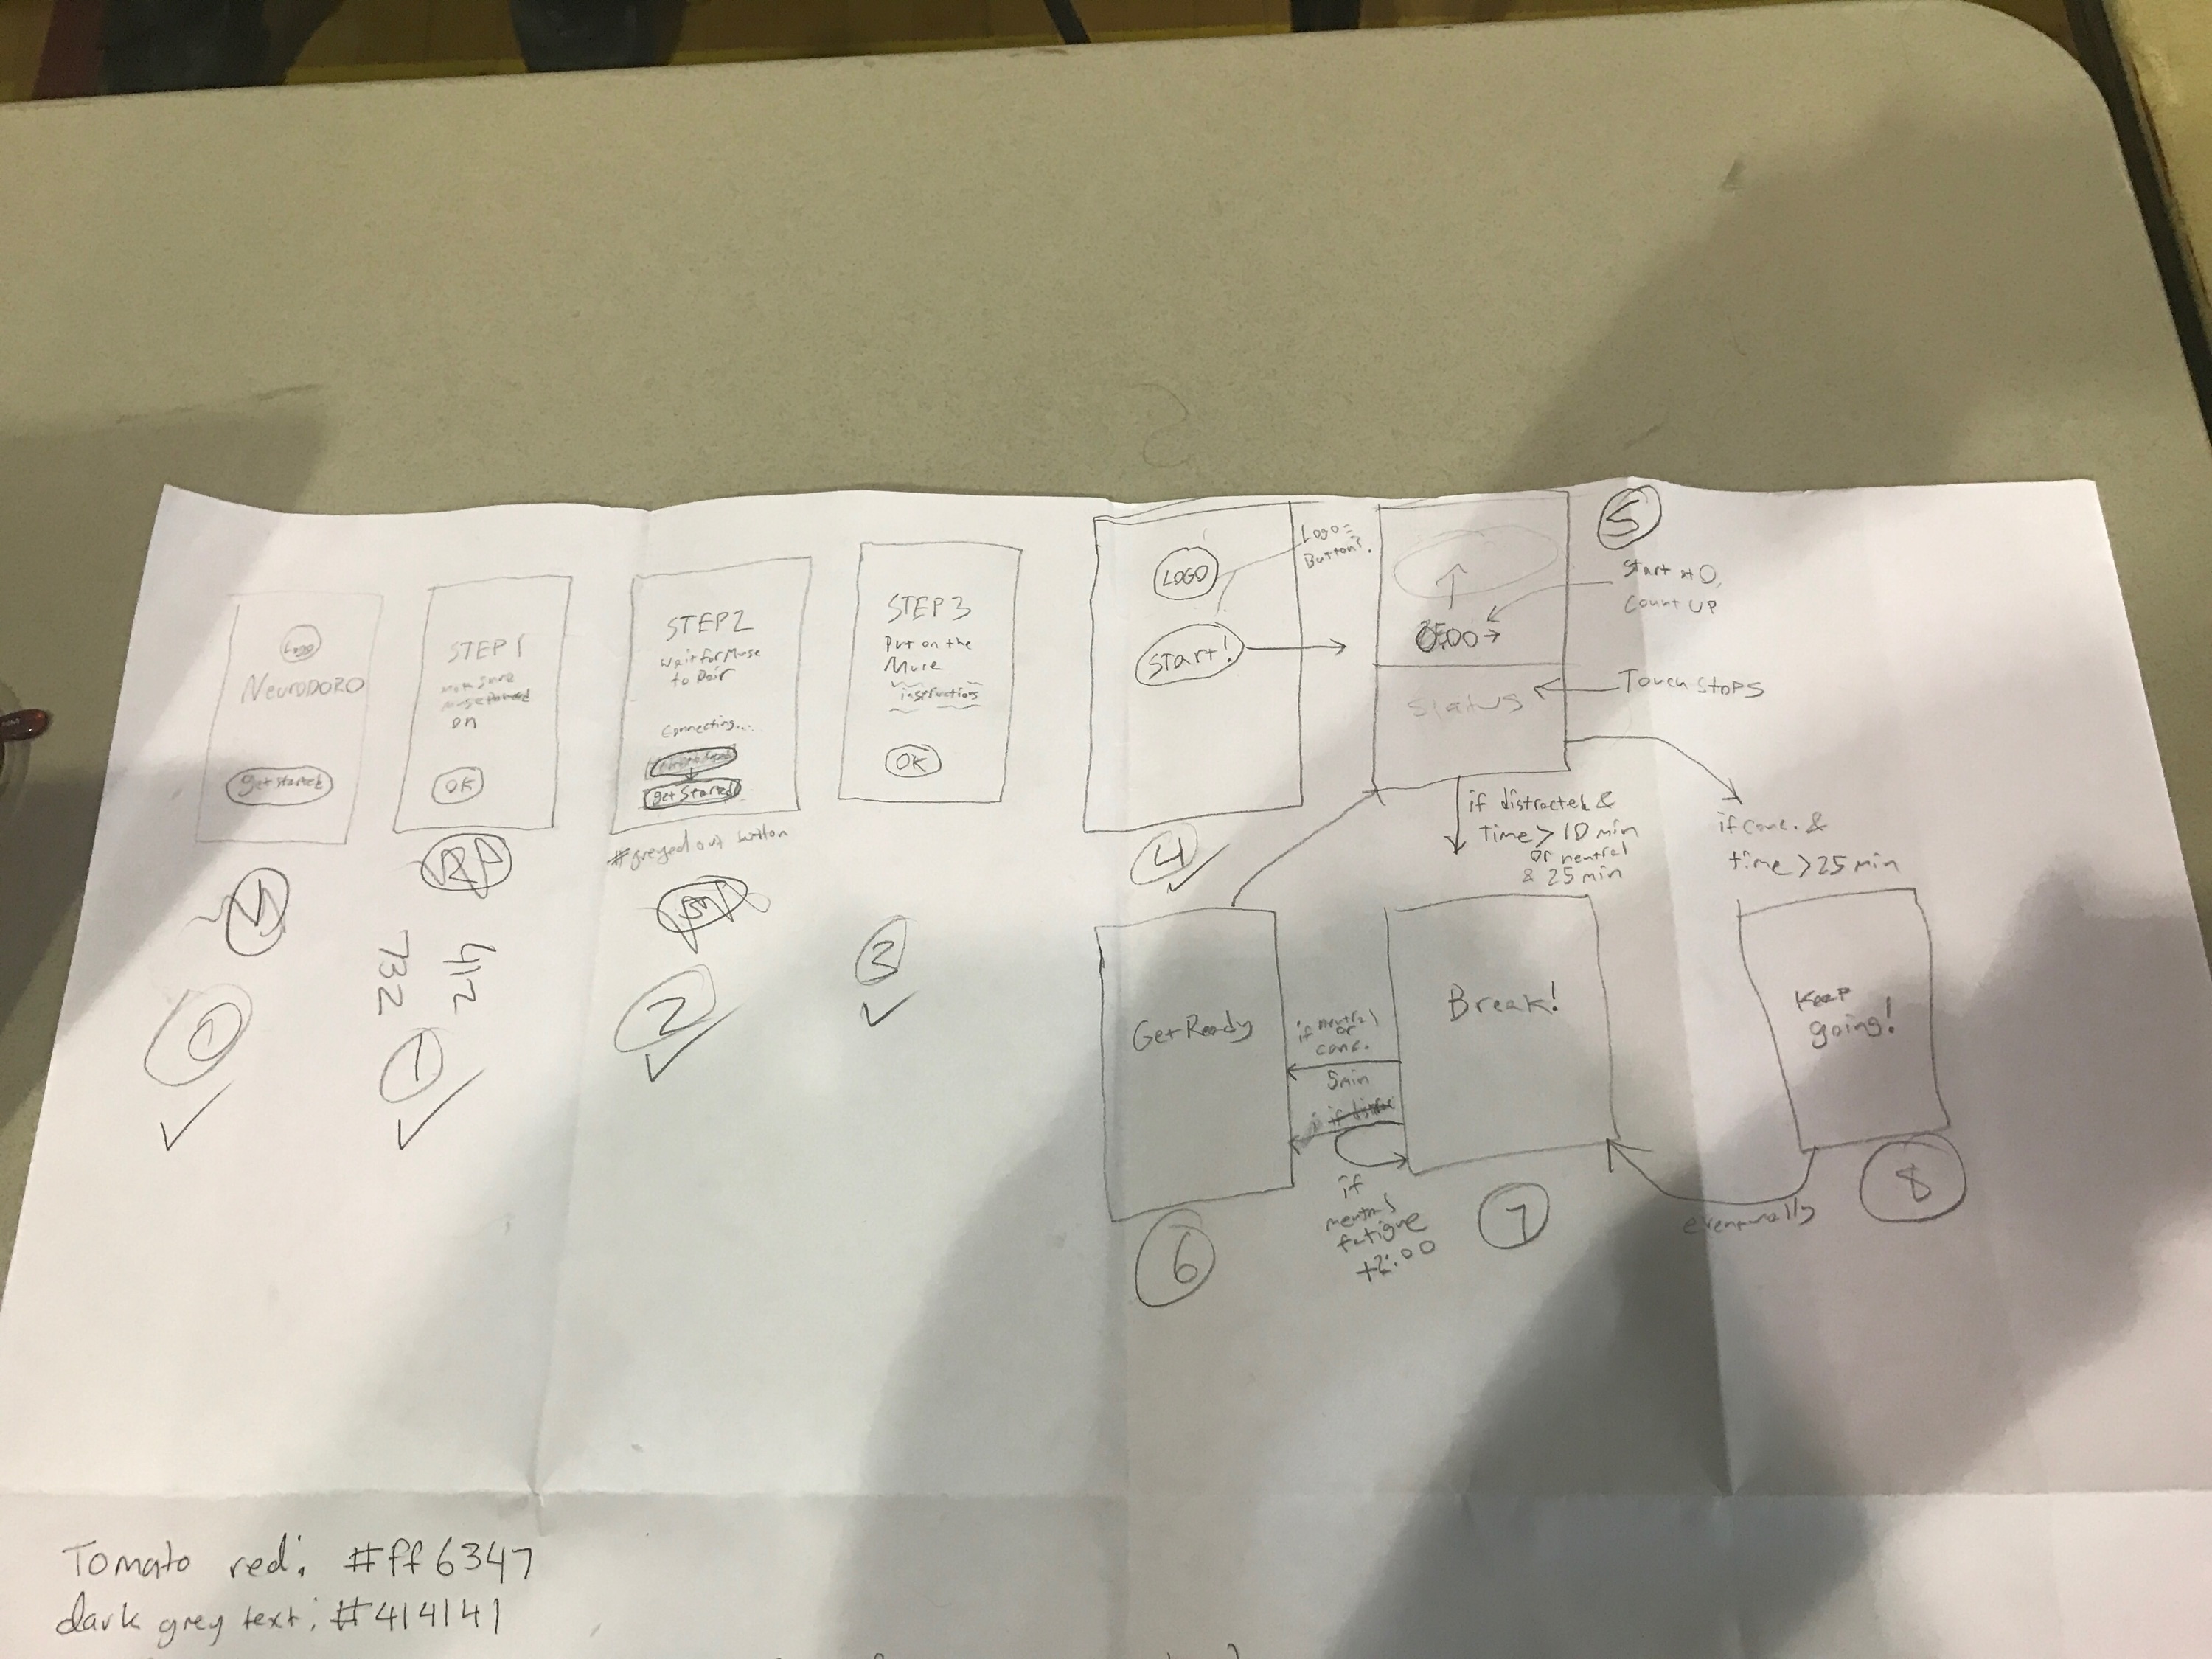 Logo
NeuroDORO
get started
STEP 1
make sure
muse turned
on
OK
STEP 2
wait for Muse
to Pair
connecting...
get Started
#greyed out button
STEP 3
Put on the
Muse
instructions
OK
LOGO
Start!
Logo =
Button?
00:00
Status
5
Start at 0,
count up
Touch stops
if distracted &
Time > 10 min
or neutral
& 25 min
if conc. &
time > 25 min
0
1
732
412
2
3
4
Get Ready
6
if neutral
or
conc.
5min
if
mental
fatigue
+2:00
Break!
7
Keep
going!
8
eventually
Tomato red: #ff6347
dark grey text: #414141